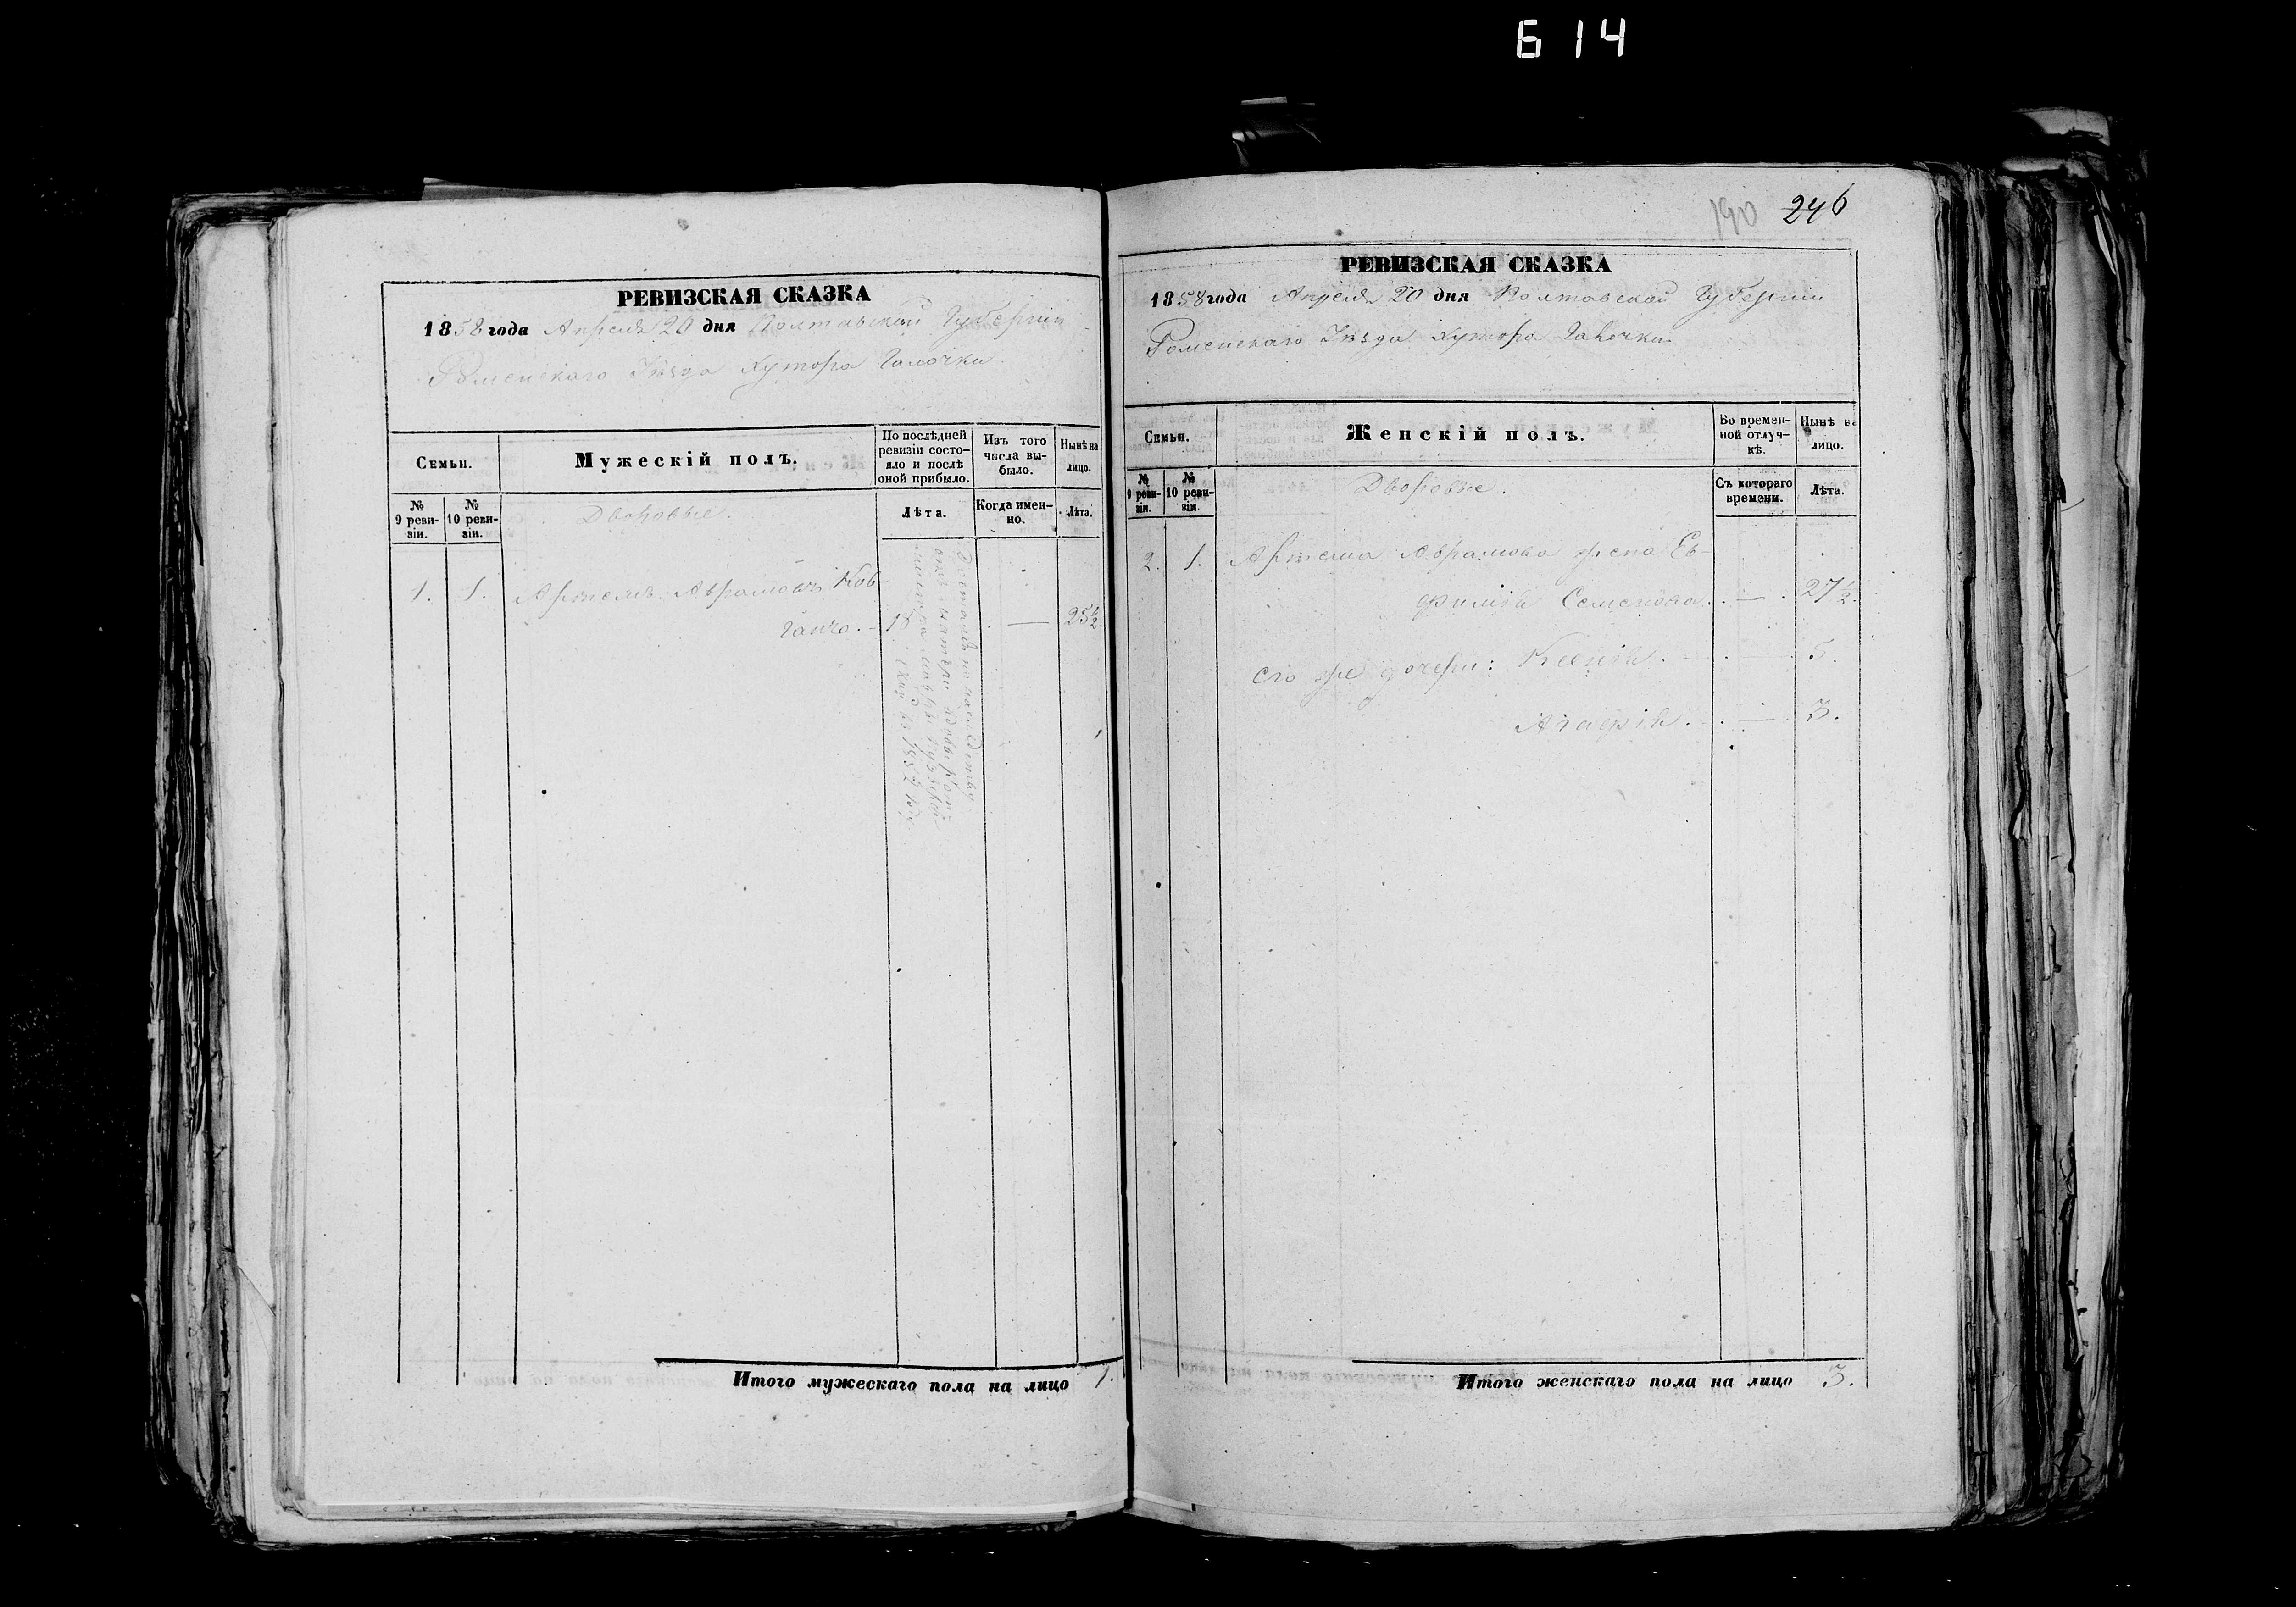 614
РЕВИЗСКАЯ СКАЗКА
1858 года Апреля 20 дня Полтавской Губернии
Роменскаго Уѣзда Хутора
Семьи.
Мужескій полъ.
По послѣдней ревизіи состояло и послѣ оной прибыло.
Изъ того числа выбыло.
Нынѣ на лицо.
№ 9 ревизіи.
№ 10 ревизіи.
Дворовые.
Лѣта.
Когда именно.
Лѣта.
1. 1. Артемъ Аврамовъ Ков-
18 — 25½
Итого мужескаго пола на лицо 1.
190 246
РЕВИЗСКАЯ СКАЗКА
1858 года Апреля 20 дня Полтавской Губернии
Роменскаго Уѣзда Хутора
Семьи.
Женскій полъ.
Во временной отлучкѣ.
Нынѣ на лицо.
№ 9 ревизіи.
№ 10 ревизіи.
Дворовые.
Съ котораго времени.
Лѣта.
2. 1. Артема Аврамова жена Ев-
фимія Семенова. — 27½.
его же дочери: Ксенія. — 5.
Агафія. — 3.
Итого женскаго пола на лицо 3.